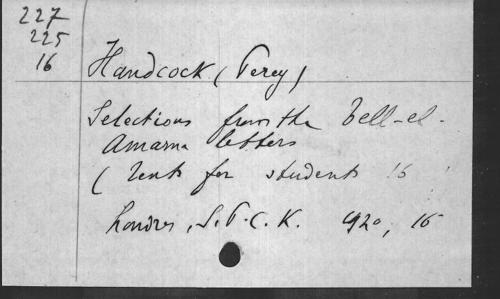 227
225
16
Handcock (Percy)
Selections from the Tell-el-
Amarna letters
(Texts for students 16
Londres, S.P.C.K. 920, 16